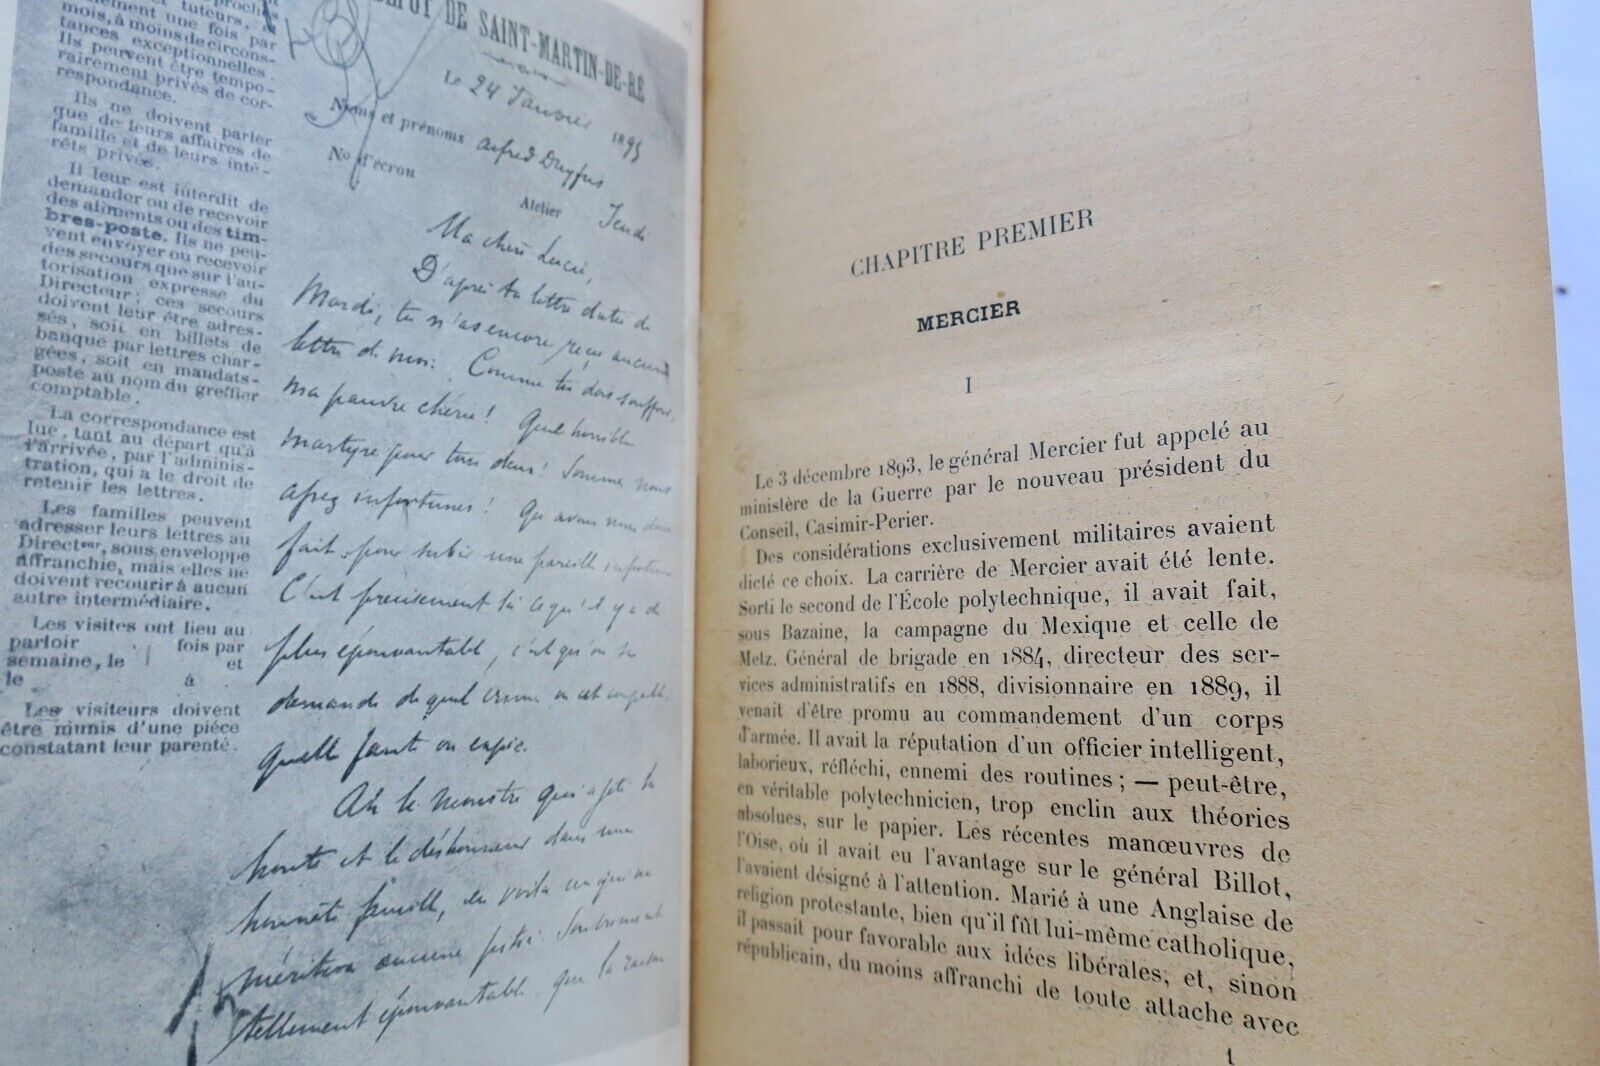 proches
tuteurs, et
ment une fois par
mois, à moins de circons-
tances exceptionnelles.
Ils peuvent être tempo-
rairement privés de cor-
respondance.
Ils ne doivent parler
que de leurs affaires de
famille et de leurs inté-
rêts privés.
Il leur est interdit de
demander ou de recevoir
des aliments ou des tim-
bres-poste. Ils ne peu-
vent envoyer ou recevoir
des secours que sur l'au-
torisation expresse du
Directeur; ces secours
doivent leur être adres-
sés, soit en billets de
banque par lettres char-
gées, soit en mandats-
poste au nom du greffier
comptable.
La correspondance est
lue, tant au départ qu'à
l'arrivée, par l'adminis-
tration, qui a le droit de
retenir les lettres.
Les familles peuvent
adresser leurs lettres au
Directeur, sous enveloppe
affranchie, mais elles ne
doivent recourir à aucun
autre intermédiaire.
Les visites ont lieu au
parloir fois par
semaine, le et
le à
Les visiteurs doivent
être munis d'une pièce
constatant leur parenté.
DE SAINT-MARTIN-DE-RÉ
Le 24 Janvier 1895
Noms et prénoms Alfred Dreyfus
No d'écrou
Atelier Jeudi
Ma chère Lucie,
D'après ta lettre datée de
Mardi, tu n'as encore reçu aucune
lettre de moi. Comme tu dois souffrir,
ma pauvre chérie! Quel horrible
martyre pour tous deux! Sommes nous
assez infortunés! Qu'avons nous donc
fait pour subir une pareille infortune
C'est précisement là ce qu'il y a de
plus épouvantable, c'est qu'on se
demande de quel crime on est coupable,
quelle faute on expie.
Ah le monstre qui a jeté la
honte et le déshonneur dans une
honnête famille, en voilà un qui ne
méritera aucune pitié.
tellement épouvantable, que la raison
CHAPITRE PREMIER
MERCIER
I
Le 3 décembre 1893, le général Mercier fut appelé au
ministère de la Guerre par le nouveau président du
Conseil, Casimir-Perier.
Des considérations exclusivement militaires avaient
dicté ce choix. La carrière de Mercier avait été lente.
Sorti le second de l'École polytechnique, il avait fait,
sous Bazaine, la campagne du Mexique et celle de
Metz. Général de brigade en 1884, directeur des ser-
vices administratifs en 1888, divisionnaire en 1889, il
venait d'être promu au commandement d'un corps
d'armée. Il avait la réputation d'un officier intelligent,
laborieux, réfléchi, ennemi des routines; — peut-être,
en véritable polytechnicien, trop enclin aux théories
absolues, sur le papier. Les récentes manœuvres de
l'Oise, où il avait eu l'avantage sur le général Billot,
l'avaient désigné à l'attention. Marié à une Anglaise de
religion protestante, bien qu'il fût lui-même catholique,
il passait pour favorable aux idées libérales, et, sinon
républicain, du moins affranchi de toute attache avec
1